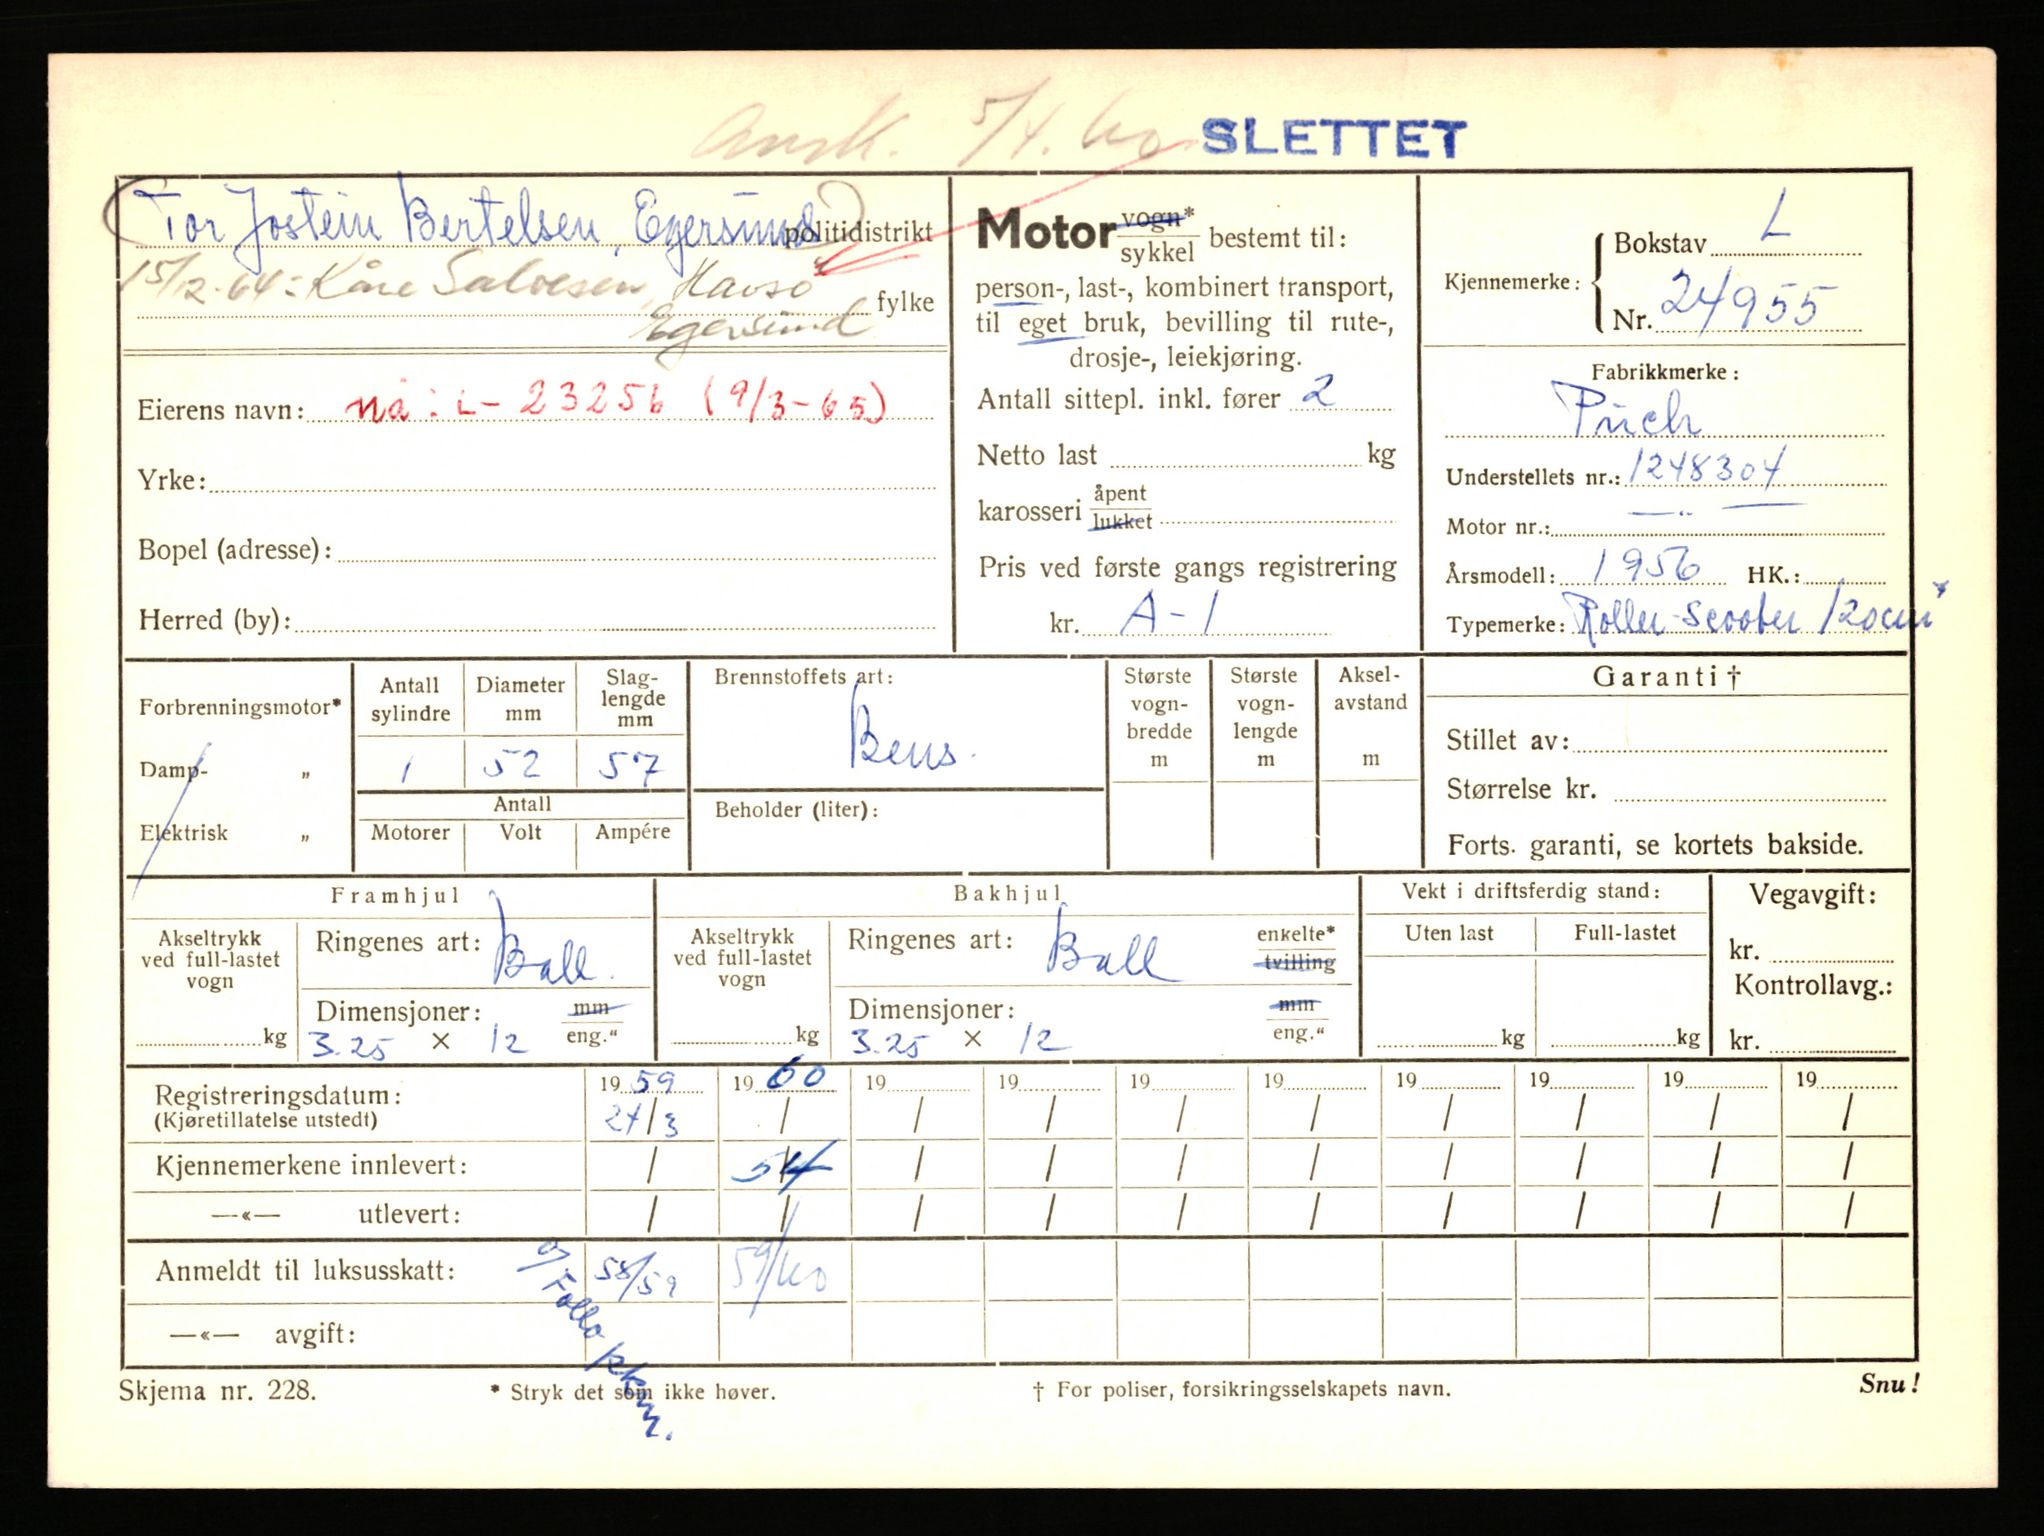 5/4. 60 SLETTET
Tor Jostein Bertelsen, Egersund politidistrikt
15/12-64: Kåre Salvesen, Havsø
Egersund fylke
Eierens navn: nå: L- 23256 (9/3-65)
Yrke:
Bopel (adresse):
Herred (by):
Motor vogn* sykkel bestemt til:
person-, last-, kombinert transport,
til eget bruk, bevilling til rute-,
drosje-, leiekjøring.
Antall sittepl. inkl. fører 2
Netto last kg
karosseri åpent lukket
Pris ved første gangs registrering
kr. A-1
Kjennemerke: Bokstav L
Nr. 24955
Fabrikkmerke:
Puch
Understellets nr.: 1248304
Motor nr.: — " —
Årsmodell: 1956 HK.:
Typemerke: Roller-Scooter 120cm³
Forbrenningsmotor*
Damp- „
Elektrisk „
Antall sylindre 1
Diameter mm 52
Slaglengde mm 57
Antall
Motorer Volt Ampére
Brennstoffets art:
Bens.
Beholder (liter):
Største vogn-bredde m
Største vogn-lengde m
Aksel-avstand m
Garanti †
Stillet av:
Størrelse kr.
Forts. garanti, se kortets bakside.
Framhjul
Akseltrykk ved full-lastet vogn kg
Ringenes art: Ball.
Dimensjoner: mm eng."
3.25 × 12
Bakhjul
Akseltrykk ved full-lastet vogn kg
Ringenes art: Ball enkelte* tvilling
Dimensjoner: mm eng."
3.25 × 12
Vekt i driftsferdig stand:
Uten last Full-lastet
kg kg
Vegavgift:
kr.
Kontrollavg.:
kr.
Registreringsdatum: 19 59 19 60 19 19 19 19 19 19 19 19
(Kjøretillatelse utstedt) 24/3 / / / / / / / / /
Kjennemerkene innlevert: / 5/4 / / / / / / / /
—«— utlevert: / / / / / / / / / /
Anmeldt til luksusskatt: 58/59 59/60
—«— avgift:
Follo
Skjema nr. 228. * Stryk det som ikke høver. † For poliser, forsikringsselskapets navn. Snu!